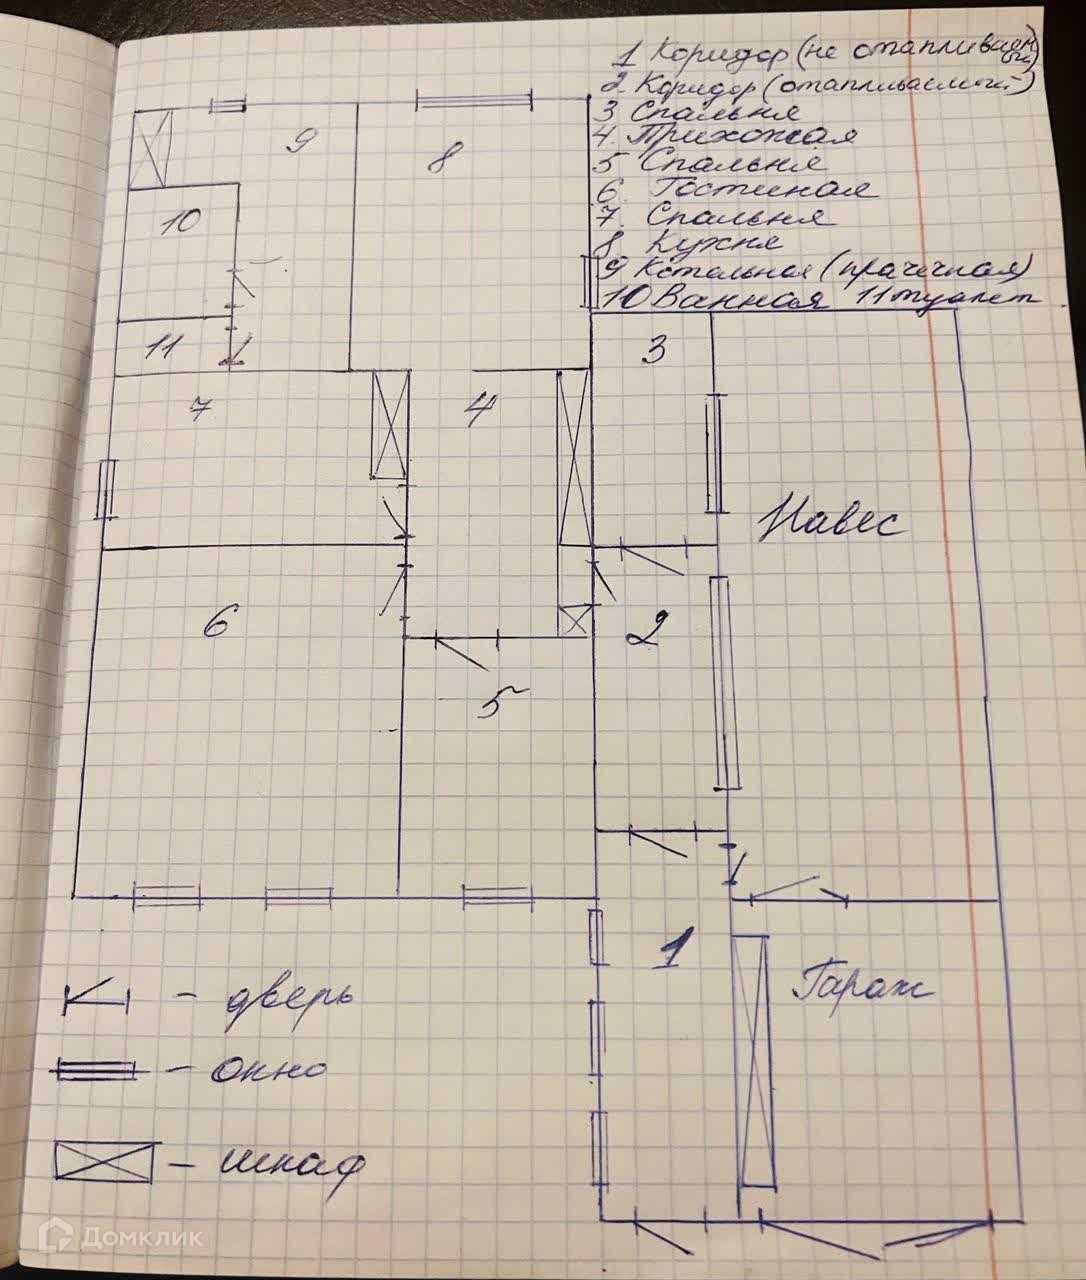 1 Коридор (не отапливаемый)
2 Коридор (отапливаемый)
3 Спальня
4 Прихожая
5 Спальня
6 Гостиная
7 Спальня
8 Кухня
9 Котельная (прачечная)
10 Ванная 11 туалет
9
8
10
11
3
7
4
Навес
6
2
5
1
Гараж
- дверь
- окно
- шкаф
Домклик